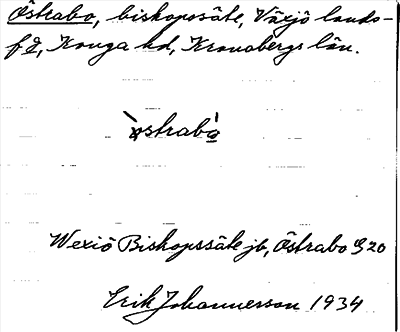 Östrabo, biskopssäte, Växjö lands-
fg, Konga hd, Kronobergs län.
östrabo
Wexiö Biskopssäte jb, Östrabo G 20
Erik Johannesson 1934